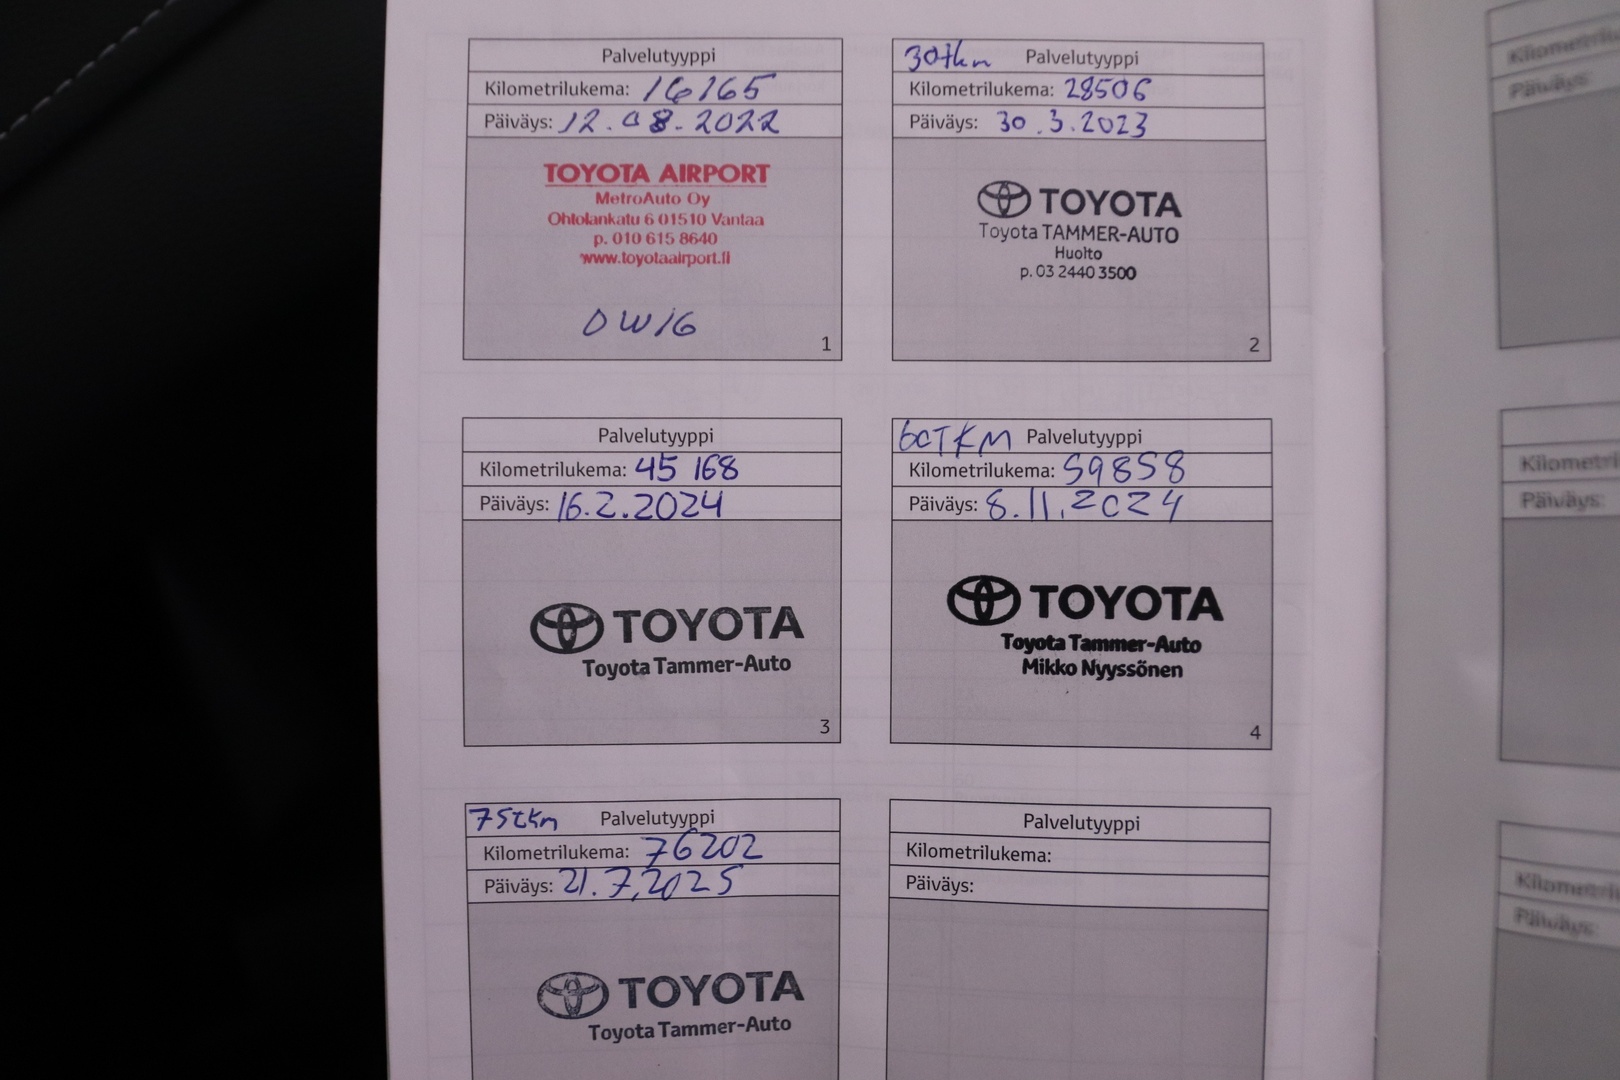 Palvelutyyppi
Kilometrilukema: 16165
Päiväys: 12.08.2022
TOYOTA AIRPORT
MetroAuto Oy
Ohtolankatu 6 01510 Vantaa
p. 010 615 8640
www.toyotaairport.fi
OW16
1
30tkm Palvelutyyppi
Kilometrilukema: 28506
Päiväys: 30.3.2023
TOYOTA
Toyota TAMMER-AUTO
Huolto
p. 03 2440 3500
2
Palvelutyyppi
Kilometrilukema: 45 168
Päiväys: 16.2.2024
TOYOTA
Toyota Tammer-Auto
3
60TKM Palvelutyyppi
Kilometrilukema: 59858
Päiväys: 8.11.2024
TOYOTA
Toyota Tammer-Auto
Mikko Nyyssönen
4
75tkm Palvelutyyppi
Kilometrilukema: 76202
Päiväys: 21.7.2025
TOYOTA
Toyota Tammer-Auto
Palvelutyyppi
Kilometrilukema:
Päiväys:
Päiväys:
Päiväys:
Päiväys: